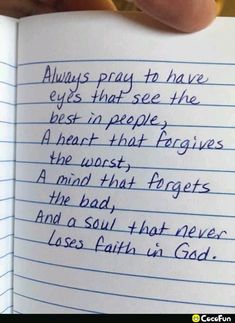 Always pray to have
eyes that see the
best in people,
A heart that forgives
the worst,
A mind that forgets
the bad,
And a soul that never
loses faith in God.
CocoFun